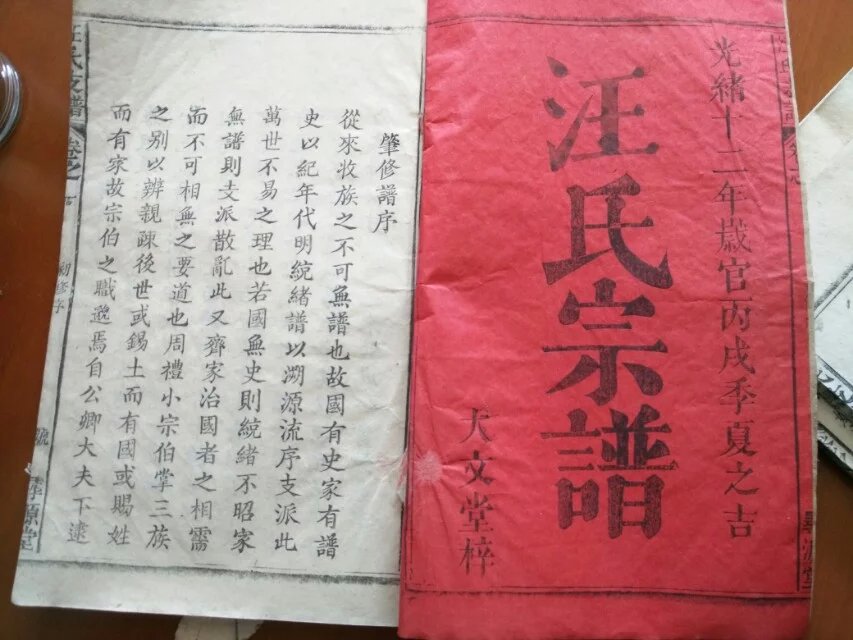 光緒十二年歲官丙戌季夏之吉
汪氏宗譜
大文堂梓
肇修譜序
從來收族之不可無譜也故國有史家有譜
史以紀年代明統緒譜以溯源流序支派此
萬世不易之理也若國無史則統緒不昭家
無譜則支派散亂此又齊家治國者之相需
而不可相無之要道也周禮小宗伯掌三族
之别以辨親疎後世或錫土而有國或賜姓
而有家故宗伯之職邈焉自公卿大夫下逮
汪氏支譜
卷之
號
源堂